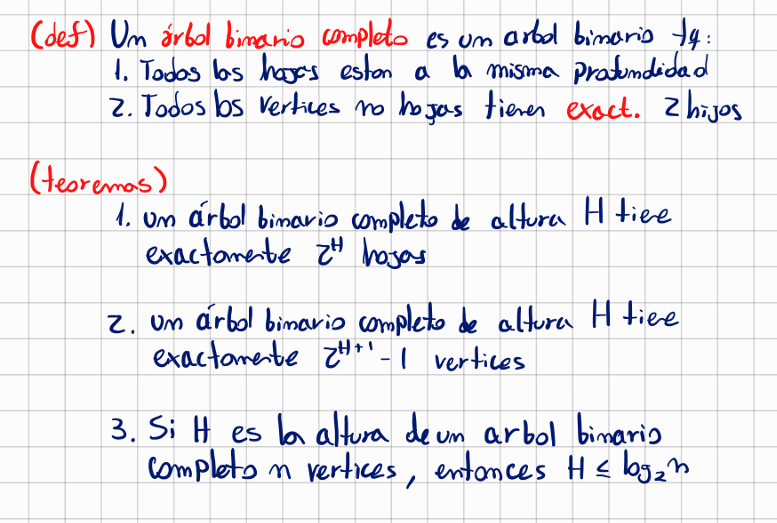 (def) Un árbol binario completo es un arbol binario tq:
1. Todos las hojas estan a la misma profundidad
2. Todos los vertices no hojas tienen exact. 2 hijos
(teoremas)
1. un árbol binario completo de altura H tiee
exactamente 2^H hojas
2. un árbol binario completo de altura H tiee
exactamente 2^{H+1} - 1 vertices
3. Si H es la altura de un arbol binario
completo n vertices, entonces H ≤ log₂n